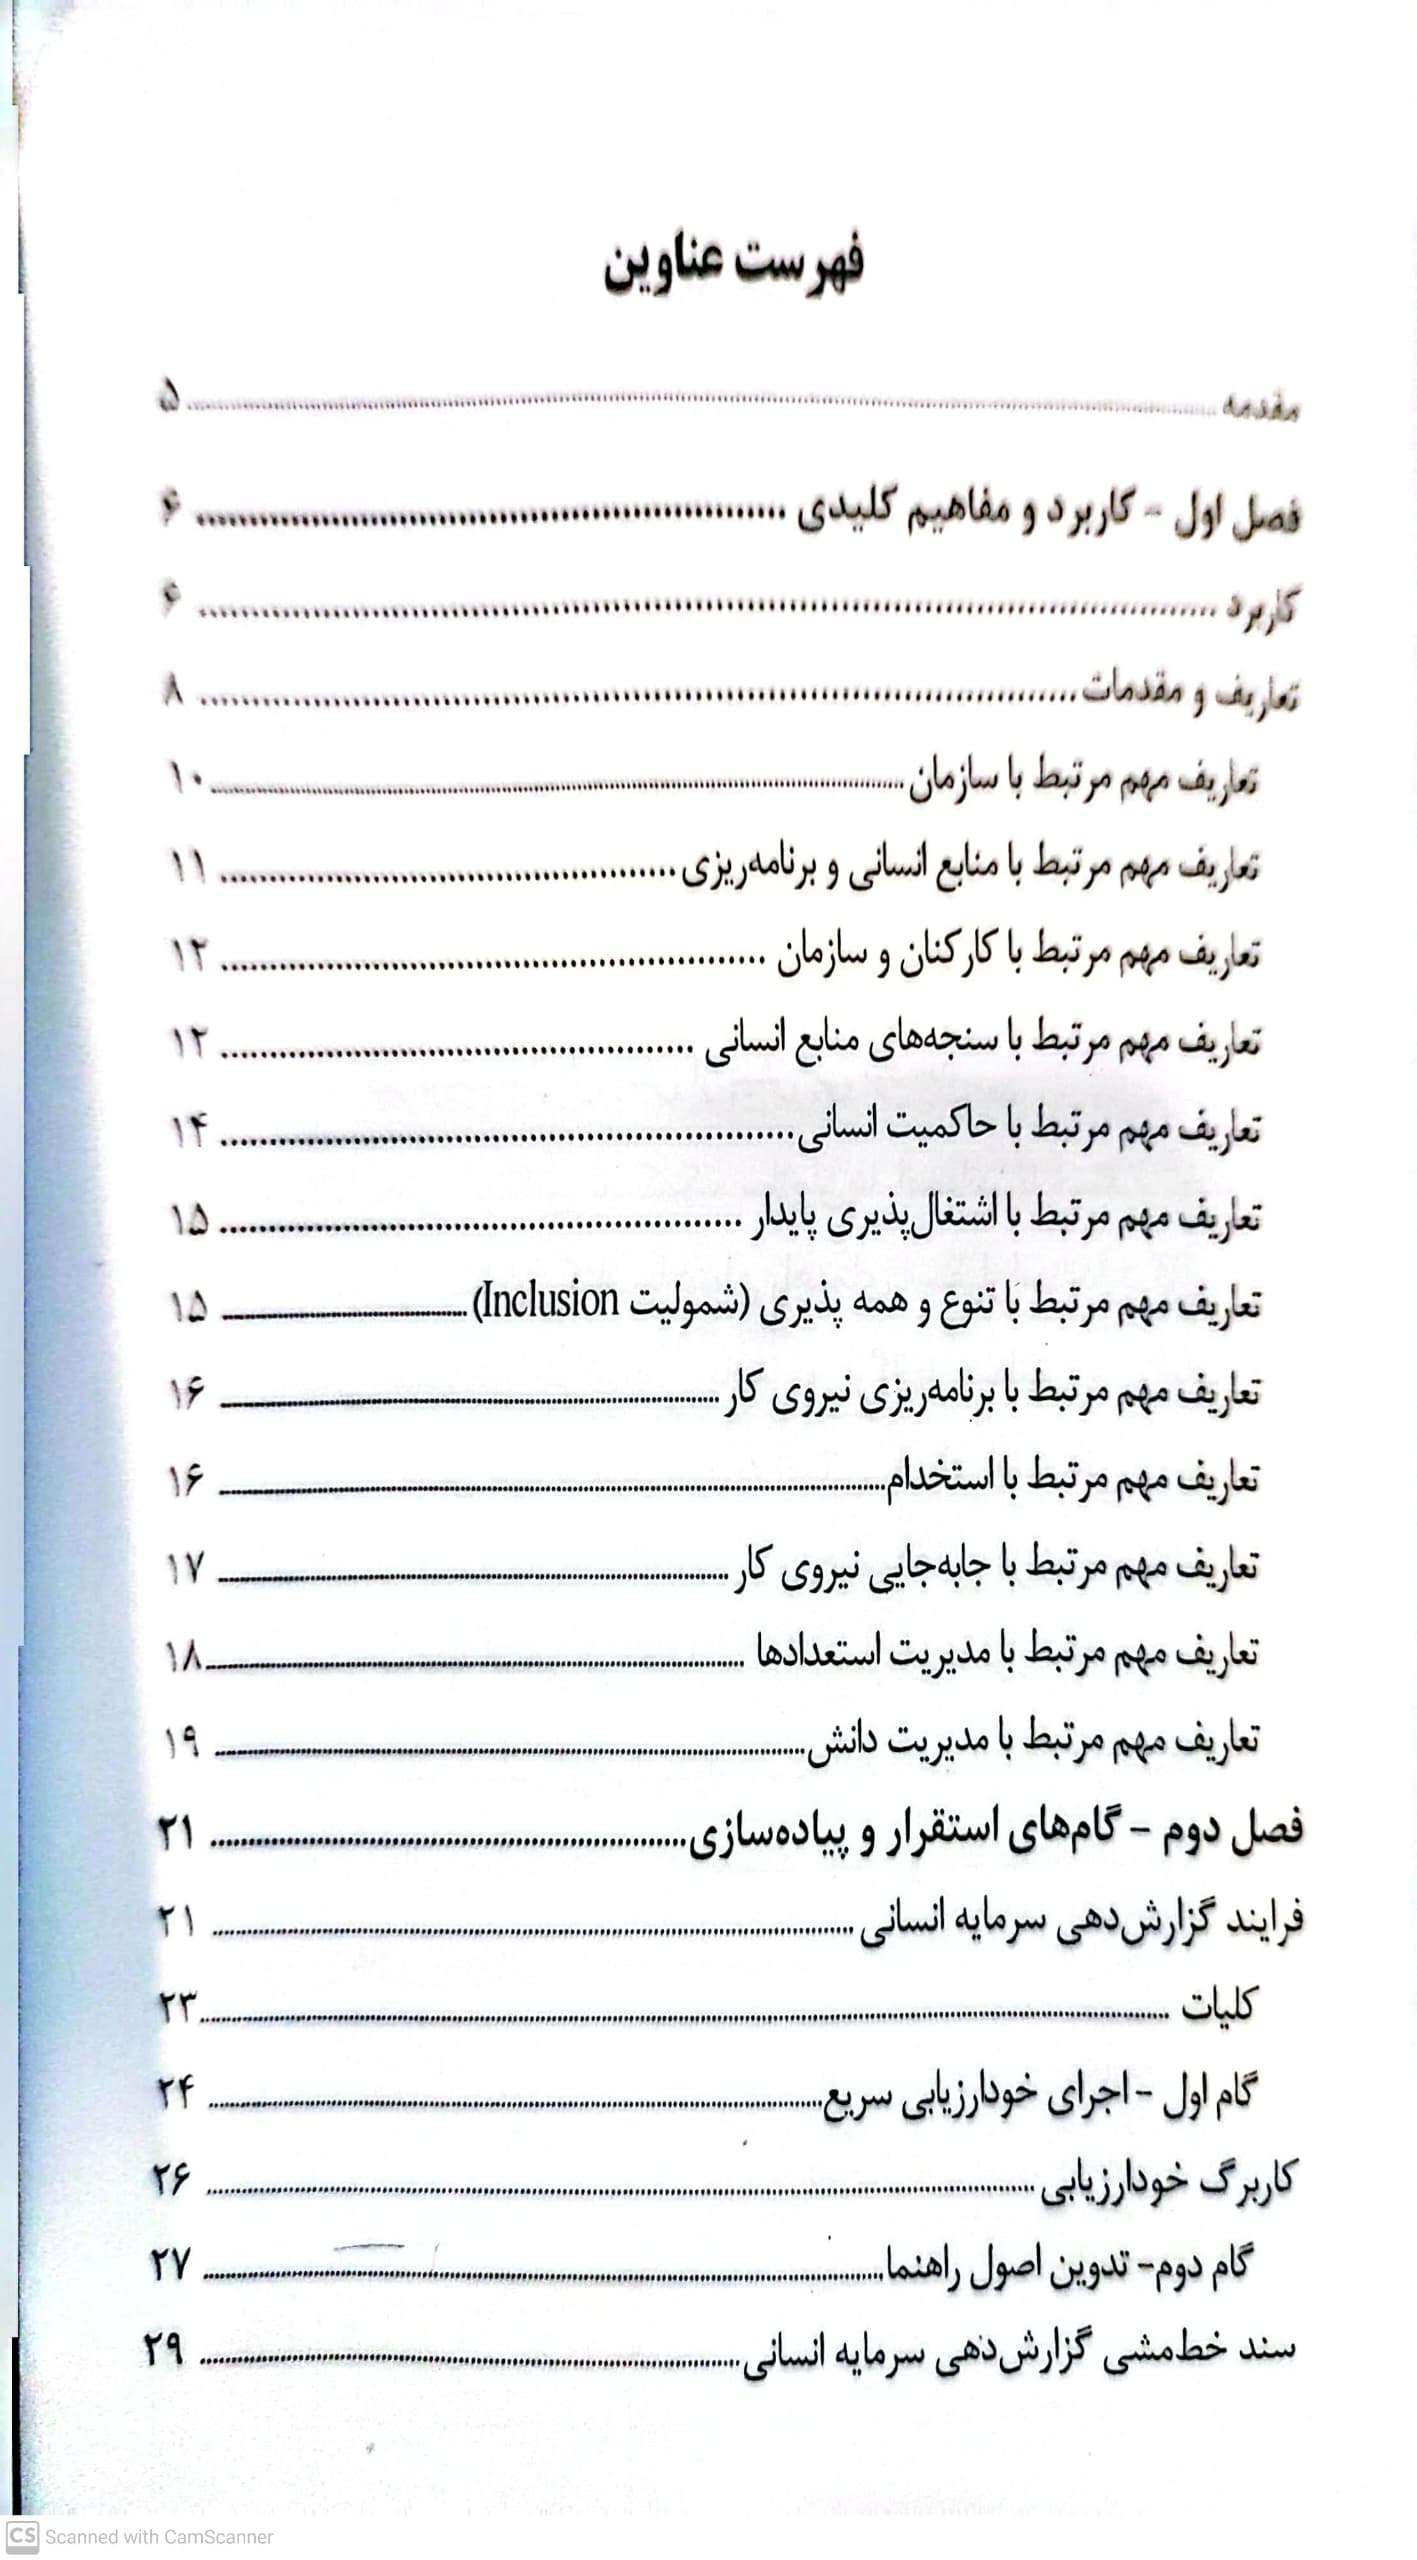 فهرست عناوین
مقدمه ........ ۵
فصل اول - کاربرد و مفاهیم کلیدی ........ ۶
کاربرد ........ ۶
تعاریف و مقدمات ........ ۸
تعاریف مهم مرتبط با سازمان ........ ۱۰
تعاریف مهم مرتبط با منابع انسانی و برنامه‌ریزی ........ ۱۱
تعاریف مهم مرتبط با کارکنان و سازمان ........ ۱۲
تعاریف مهم مرتبط با سنجه‌های منابع انسانی ........ ۱۲
تعاریف مهم مرتبط با حاکمیت انسانی ........ ۱۴
تعاریف مهم مرتبط با اشتغال‌پذیری پایدار ........ ۱۵
تعاریف مهم مرتبط با تنوع و همه پذیری (شمولیت Inclusion) ........ ۱۵
تعاریف مهم مرتبط با برنامه‌ریزی نیروی کار ........ ۱۶
تعاریف مهم مرتبط با استخدام ........ ۱۶
تعاریف مهم مرتبط با جابه‌جایی نیروی کار ........ ۱۷
تعاریف مهم مرتبط با مدیریت استعدادها ........ ۱۸
تعاریف مهم مرتبط با مدیریت دانش ........ ۱۹
فصل دوم – گام‌های استقرار و پیاده‌سازی ........ ۲۱
فرایند گزارش‌دهی سرمایه انسانی ........ ۲۱
کلیات ........ ۲۳
گام اول - اجرای خودارزیابی سریع ........ ۲۴
کاربرگ خودارزیابی ........ ۲۶
گام دوم- تدوین اصول راهنما ........ ۲۷
سند خط‌مشی گزارش‌دهی سرمایه انسانی ........ ۲۹
CS Scanned with CamScanner